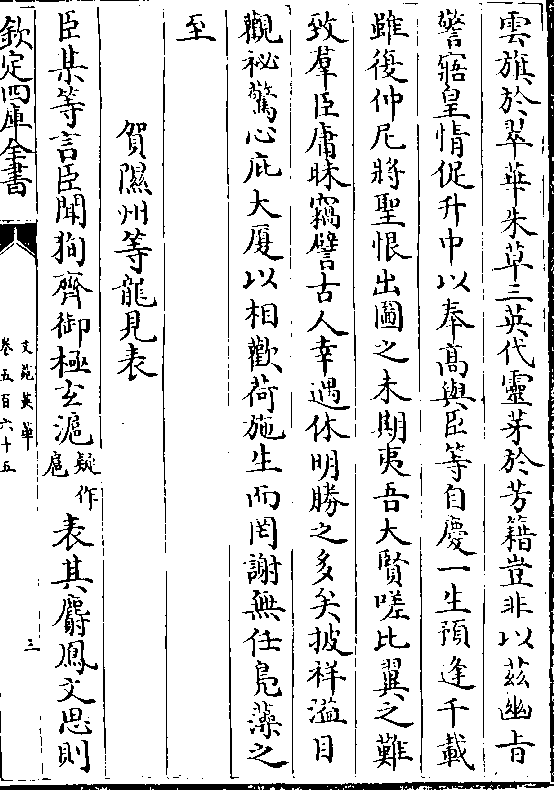 雲旗於翠華朱草三英代靈茅於芳籍豈非以兹幽旨
警寤皇情促升中以奉髙輿臣等自慶一生預逢千載
雖復仲尼將聖恨出圖之未期夷吾大賢嗟比翼之難
致羣臣庸昧竊譬古人幸遇休明勝之多矣披祥溢目
觀祕驚心庇大厦以相歡荷施生而罔謝無任鳧藻之
至
賀隰州等龍見表
臣某等言臣聞狥齊御極玄滬疑作扈表其麟鳳文思則
欽定四庫全書
文苑英華
卷五百六十五
三